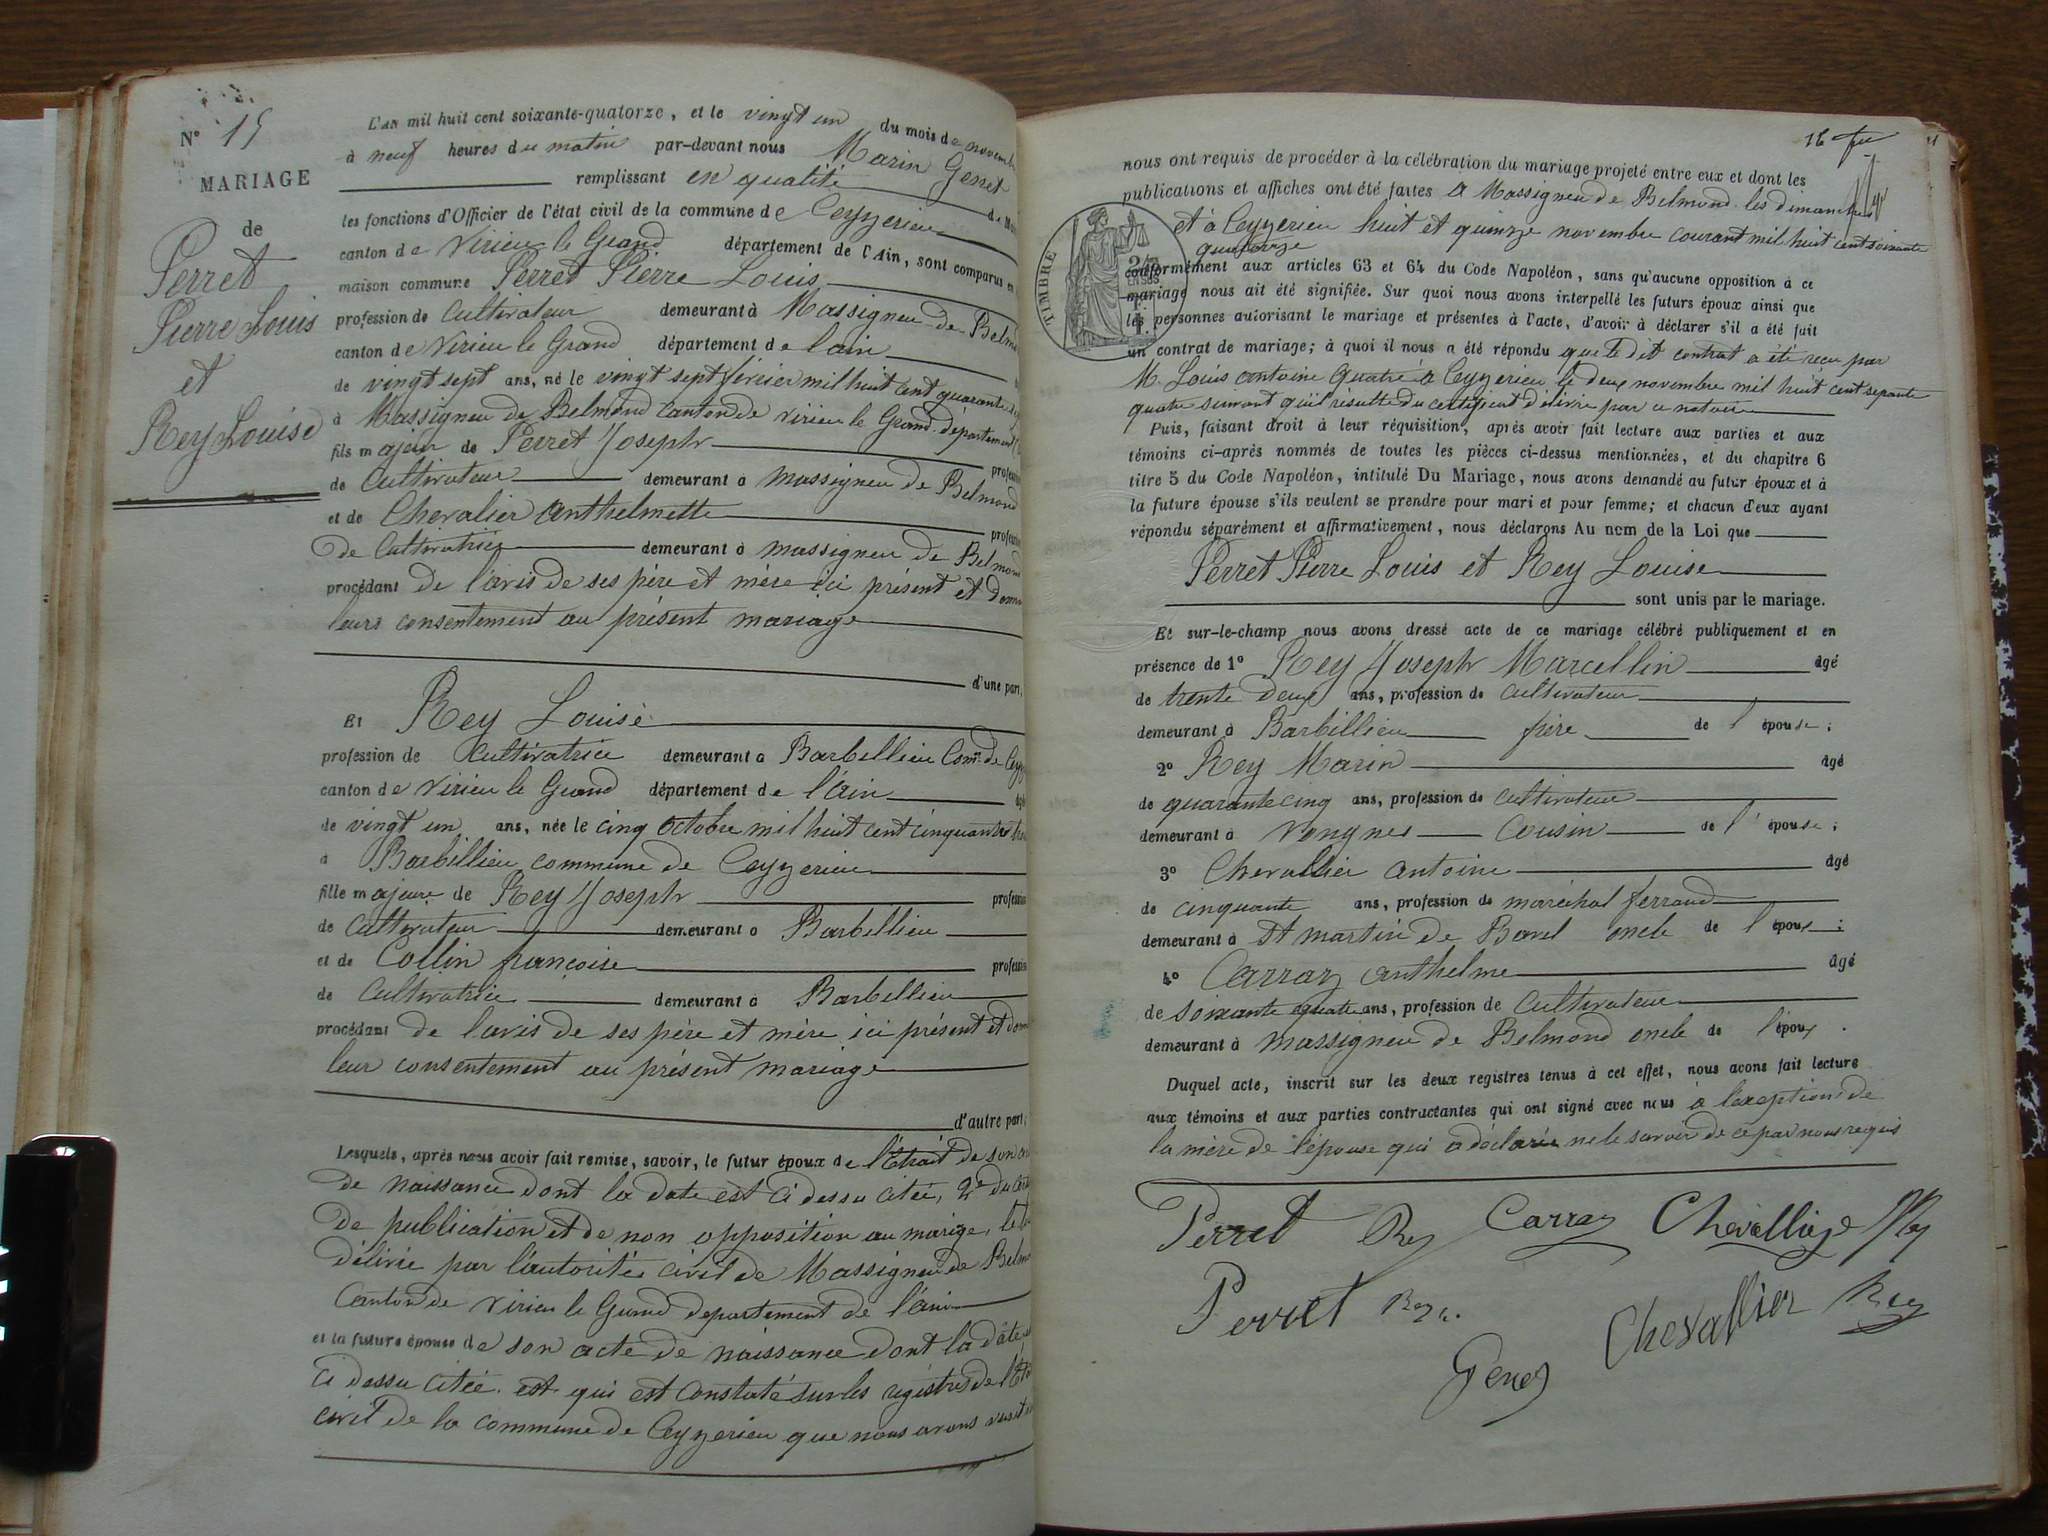 N° 15
MARIAGE
de
Perret
Pierre Louis
et
Rey Louise
L'AN mil huit cent soixante-quatorze, et le vingt un du mois de novemb
à neuf heures du matin par-devant nous Marin Genet
remplissant en qualité de M
les fonctions d'Officier de l'état civil de la commune de Ceyzerieu
canton de Virieu le Grand département de l'Ain, sont comparus en
maison commune Perret Pierre Louis
profession de cultivateur demeurant à Massigneu de Belm
canton de Virieu le Grand département de lain
de vingt sept ans, né le vingt sept février mil huit cent quarante
à Massigneu de Belmond canton de Virieu le Grand département
fils majeur de Perret Joseph profess
de Cultivateur demeurant à massigneu de Belmond
et de Chevalier anthelmette profess
de Cultivatrice demeurant à massigneu de Belmond
procédant de l'avis de ses père et mère ici présent et donn
leurs consentement au présent mariage
d'une part,
Et Rey Louise
profession de cultivatrice demeurant à Barbillieu Com.ne de Cey
canton de Virieu le Grand département de l'ain âgé
de vingt un ans, née le cinq octobre mil huit cent cinquante
à Barbillieu commune de Ceyzerieu
fille majeure de Rey Joseph profession
de cultivateur demeurant à Barbillieu
et de Collin françoise profession
de Cultivatrice demeurant à Barbillieu
procédant de l'avis de ses père et mère ici présent et donn
leur consentement au présent mariage
d'autre part,
Lesquels, après nous avoir fait remise, savoir, le futur époux de l'Extrait de son
de naissance dont la date est ci dessu citée, 2° du
de publication et de non opposition au marige, le
délivré par l'autorité civil de Massigneu de Belm
Canton de Virieu le Grand departement de l'ain
et la future épouse de son acte de naissance dont la dâte
ci dessu citée est qui est constaté sur les régistres de l'Et
civil de la commune de Ceyzerieu que nous avons
16 feu
nous ont requis de procéder à la célébration du mariage projeté entre eux et dont les
publications et affiches ont été faites à Massigneu de Belmond les dimanches
et à Ceyzerieu huit et quinze novembre courant mil huit cent soixante
quatorze
conformément aux articles 63 et 64 du Code Napoléon, sans qu'aucune opposition à ce
mariage nous ait été signifiée. Sur quoi nous avons interpellé les futurs époux ainsi que
les personnes autorisant le mariage et présentes à l'acte, d'avoir à déclarer s'il a été fait
un contrat de mariage; à quoi il nous a été répondu que le dit contrat a été reçu par
M. Louis antoine Quatre à Ceyzerieu le deux novembre mil huit cent septante
quatre suivant qu'il résulte du certificat délivré par ce notaire
TIMBRE
Puis, faisant droit à leur réquisition, après avoir fait lecture aux parties et aux
témoins ci-après nommés de toutes les pièces ci-dessus mentionnées, et du chapitre 6
titre 5 du Code Napoléon, intitulé Du Mariage, nous avons demandé au futur époux et à
la future épouse s'ils veulent se prendre pour mari et pour femme; et chacun d'eux ayant
répondu séparément et affirmativement, nous déclarons Au nom de la Loi que
Perret Pierre Louis et Rey Louise
sont unis par le mariage.
Et sur-le-champ nous avons dressé acte de ce mariage célébré publiquement et en
présence de 1° Rey Joseph Marcellin âgé
de trente deux ans, profession de cultivateur
demeurant à Barbillieu frère de l'épouse;
2° Rey Marin âgé
de quarante cinq ans, profession de cultivateur
demeurant à Vongnes cousin de l'épouse;
3° Chevallier antoine âgé
de cinquante ans, profession de maréchal ferrand
demeurant à St martin de Bavel oncle de l'époux;
4° Carraz anthelme âgé
de soixante quatre ans, profession de cultivateur
demeurant à massigneu de Belmond oncle de l'époux.
Duquel acte, inscrit sur les deux registres tenus à cet effet, nous avons fait lecture
aux témoins et aux parties contractantes qui ont signé avec nous à l'exception de
la mère de l'épouse qui a déclarée ne le savoir de ce par nous requis
Perret Rey Carraz Chevallier Rey
Perret Rey Chevallier Rey
Genet